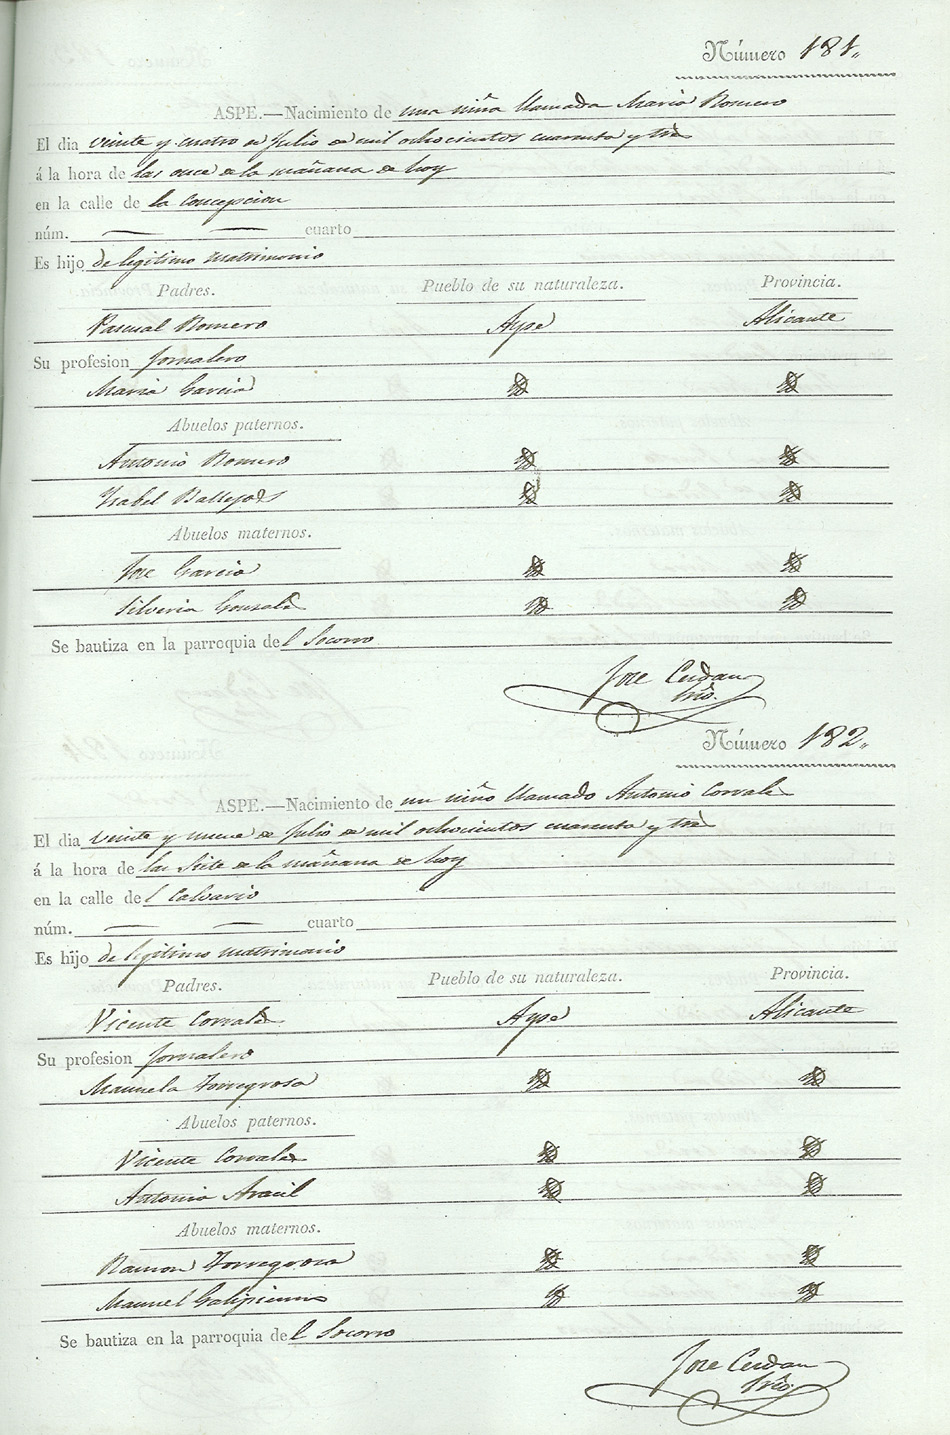 Número 181.
ASPE.—Nacimiento de una niña llamada Maria Romero
El dia veinte y cuatro de Julio de mil ochocientos cuarenta y tres
á la hora de las once de la mañana de hoy
en la calle de la Concepcion
núm. — — cuarto
Es hijo de legitimo matrimonio
Padres. Pueblo de su naturaleza. Provincia.
Pascual Romero Aspe Alicante
Su profesion Jornalero
Maria Garcia
Abuelos paternos.
Antonio Romero
Ysabel
Abuelos maternos.
Jose Garcia
Silveria Gonzale
Se bautiza en la parroquia del Socorro
Jose Cerdan
Srio.
Número 182.
ASPE.—Nacimiento de un niño llamado Antonio Corrale
El dia veinte y nueve de Julio de mil ochocientos cuarenta y tres
á la hora de las Siete de la mañana de hoy
en la calle del Calvario
núm. — — cuarto
Es hijo de legitimo matrimonio
Padres. Pueblo de su naturaleza. Provincia.
Vicente Corrale Aspe Alicante
Su profesion Jornalero
Manuela Torregrosa
Abuelos paternos.
Vicente Corrale
Antonia Aracil
Abuelos maternos.
Ramon Torregrosa
Se bautiza en la parroquia del Socorro
Jose Cerdan
Srio.